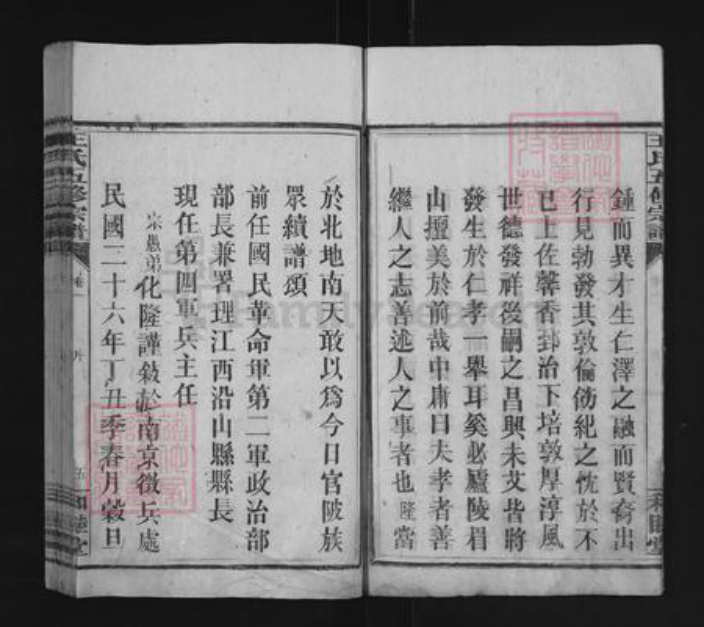 鍾而異才生仁澤之融而賢裔出
行見勃發其敦倫飭紀之忱於不
已上佐馨香郅治下培敦厚淳風
世德發祥後嗣之昌興未艾皆將
發生於仁孝一舉耳奚必廬陵眉
山擅美於前哉中庸曰夫孝者善
繼人之志善述人之事者也隆當
於北地南天敢以爲今日官陂族
眾續譜頌
前任國民革命軍第二軍政治部
部長兼署理江西沿山縣縣長
現任第四軍兵主任
宗愚弟化隆謹敍於南京徵兵處
民國二十六年丁丑季春月穀旦
王氏五修宗譜
卷一
五
和睦堂